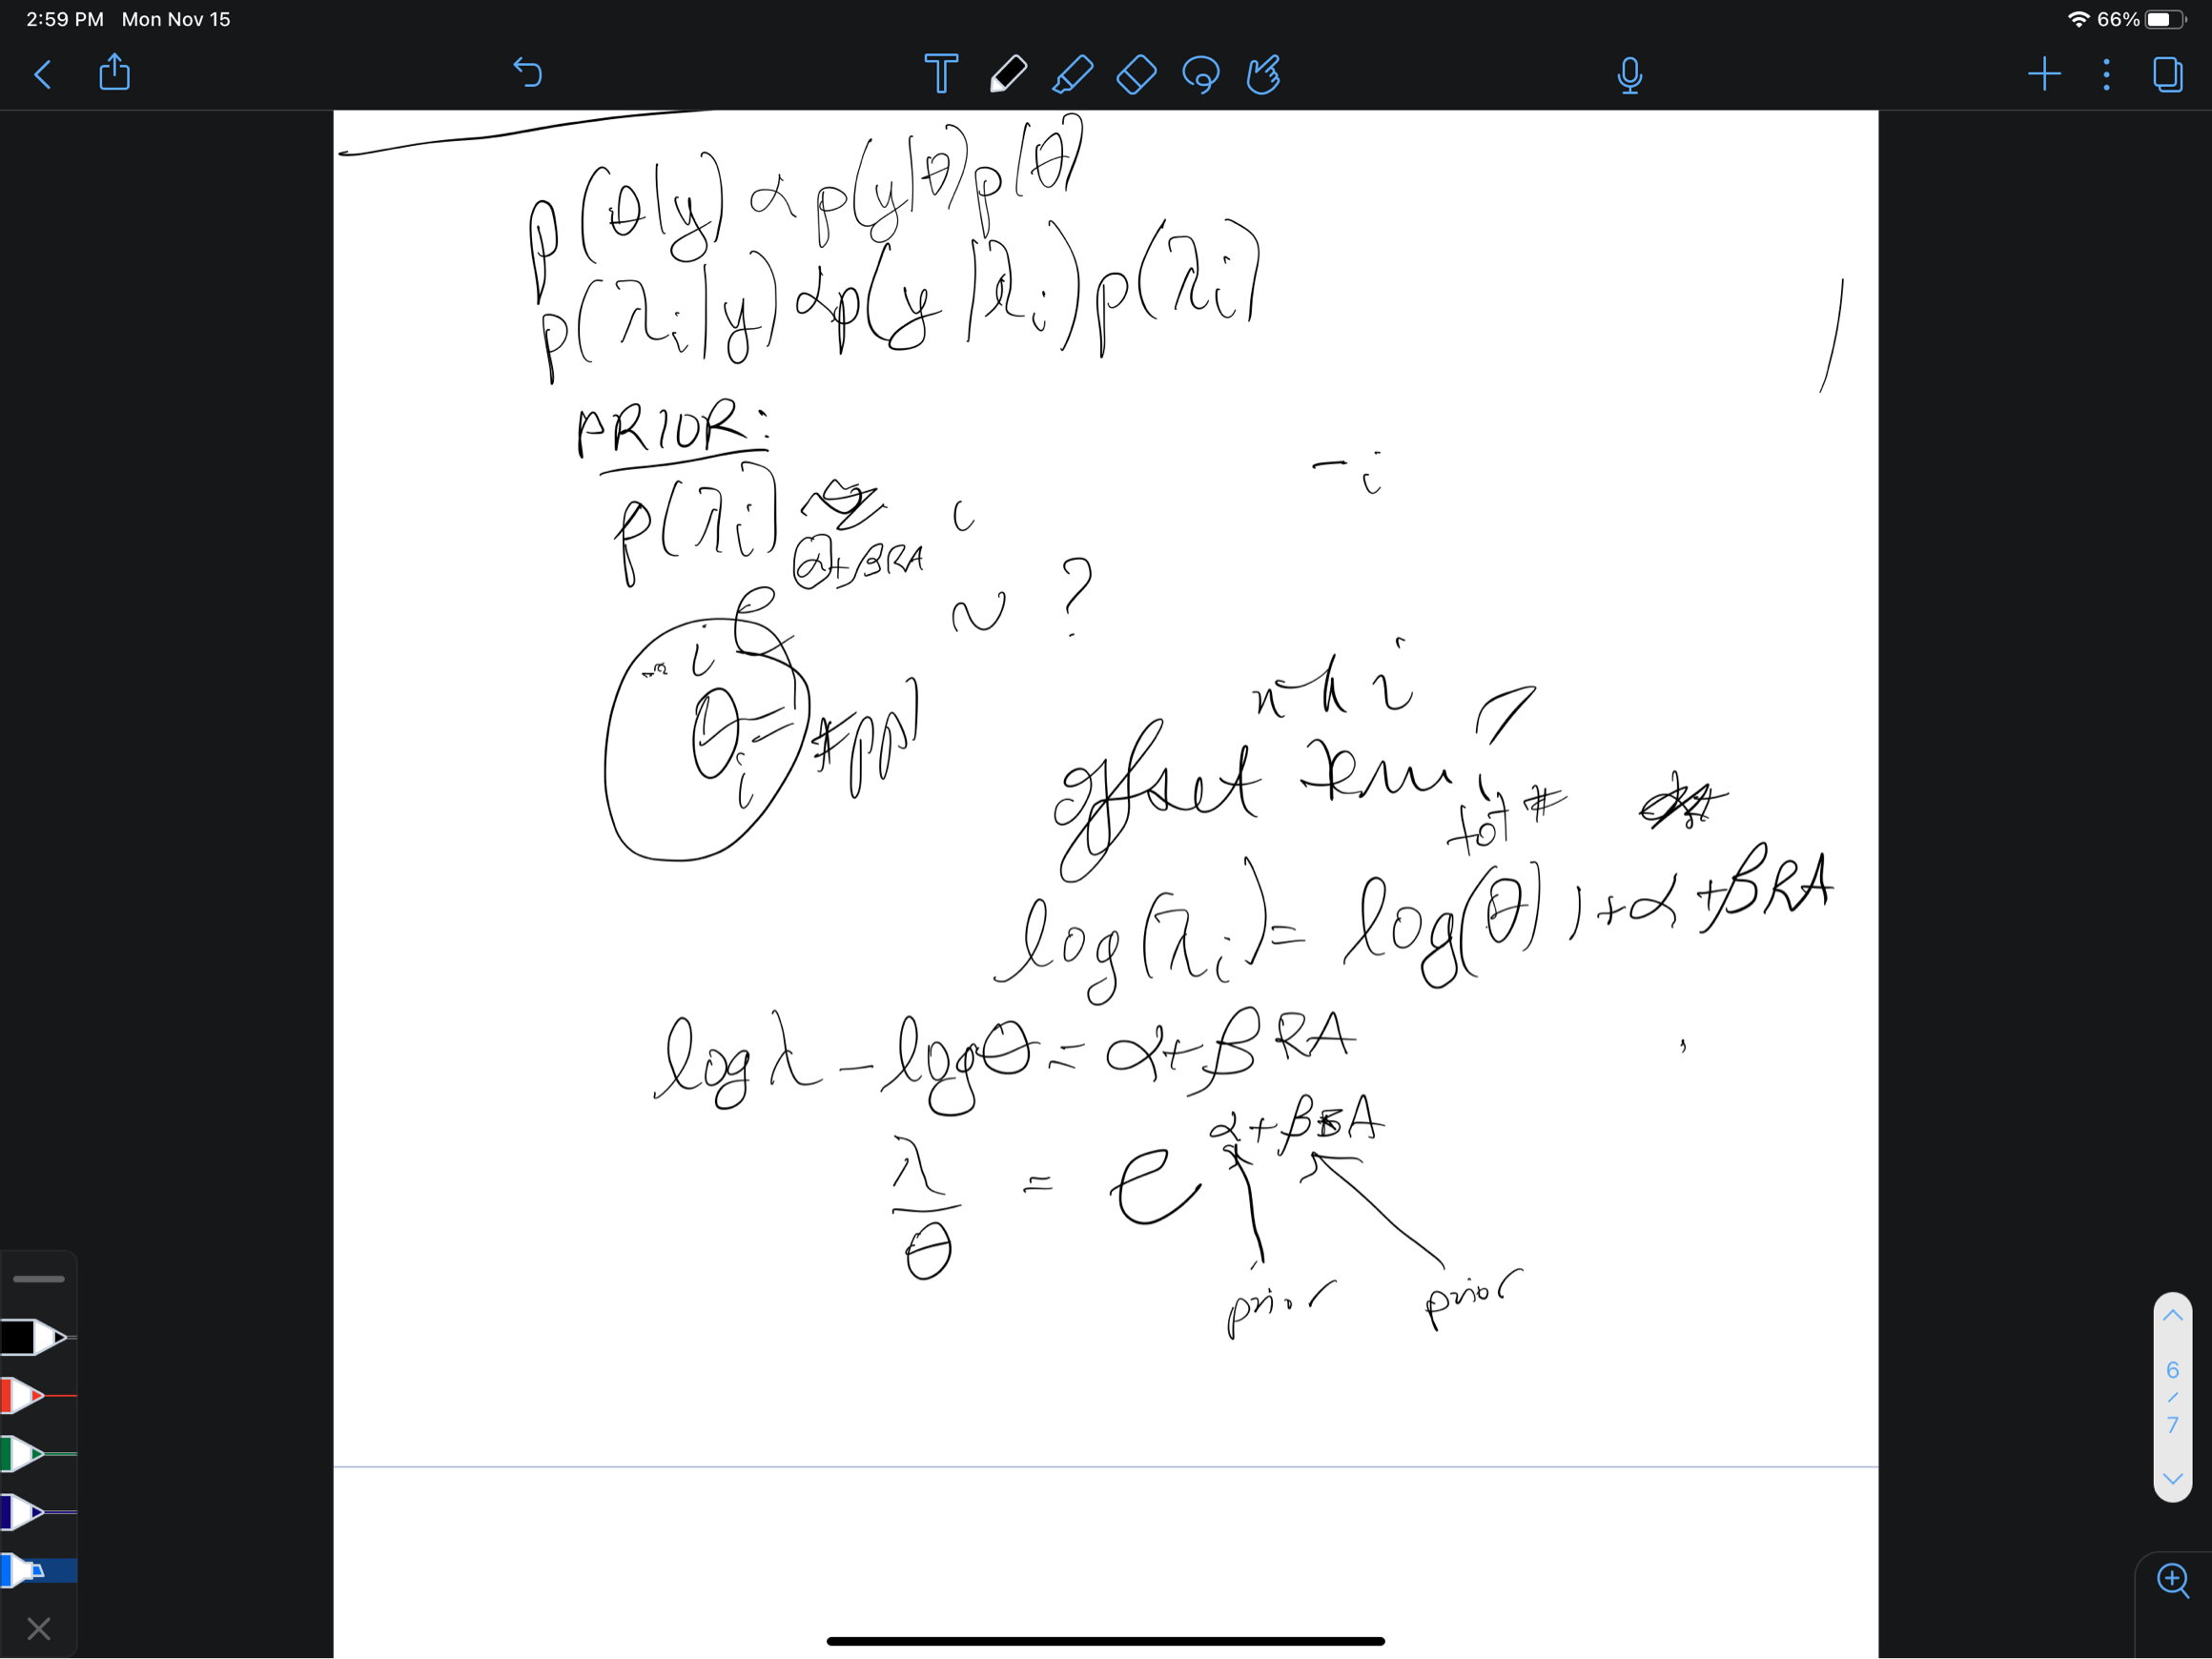 2:59 PM Mon Nov 15
66%
p(θ|y) ∝ p(y|θ)p(θ)
p(λi|y) ∝ p(y|λi)p(λi)
PRIOR:
p(λi)
α+βRA
~ ?
- i
i
offset term
tot #
log(λi) = log(θ)i + α + βRA
log λ - log θ = α + βRA
λ/θ = e^(α+βRA)
prior prior
6
/
7